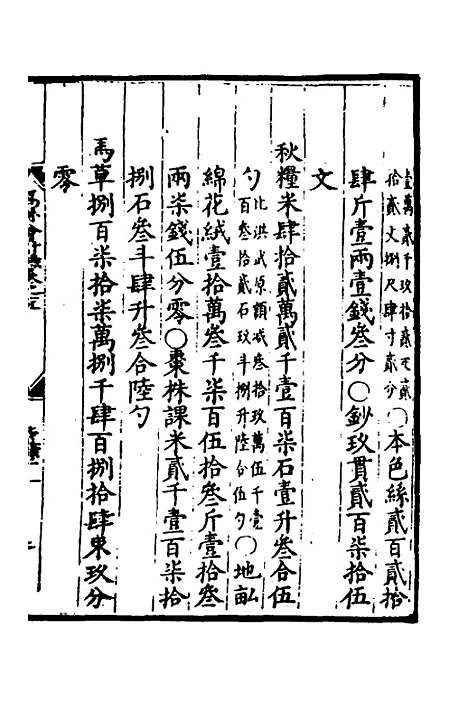 壹萬貳千玖拾貳疋貳
拾貳丈捌尺肆寸貳分○本色絲貳百貳拾
肆斤壹兩壹錢叁分○鈔玖貫貳百柒拾伍
文
秋糧米肆拾貳萬貳千壹百柒石壹升叁合伍
勺比洪武原額減叁拾玖萬伍千壹
百叁拾貳石玖斗捌升陸合伍勺○地畝
綿花絨壹拾萬叁千柒百伍拾叁斤壹拾叁
兩柒錢伍分零○棗株課米貳千壹百柒拾
捌石叁斗肆升叁合陸勺
馬草捌百柒拾柒萬捌千肆百捌拾肆束玖分
零